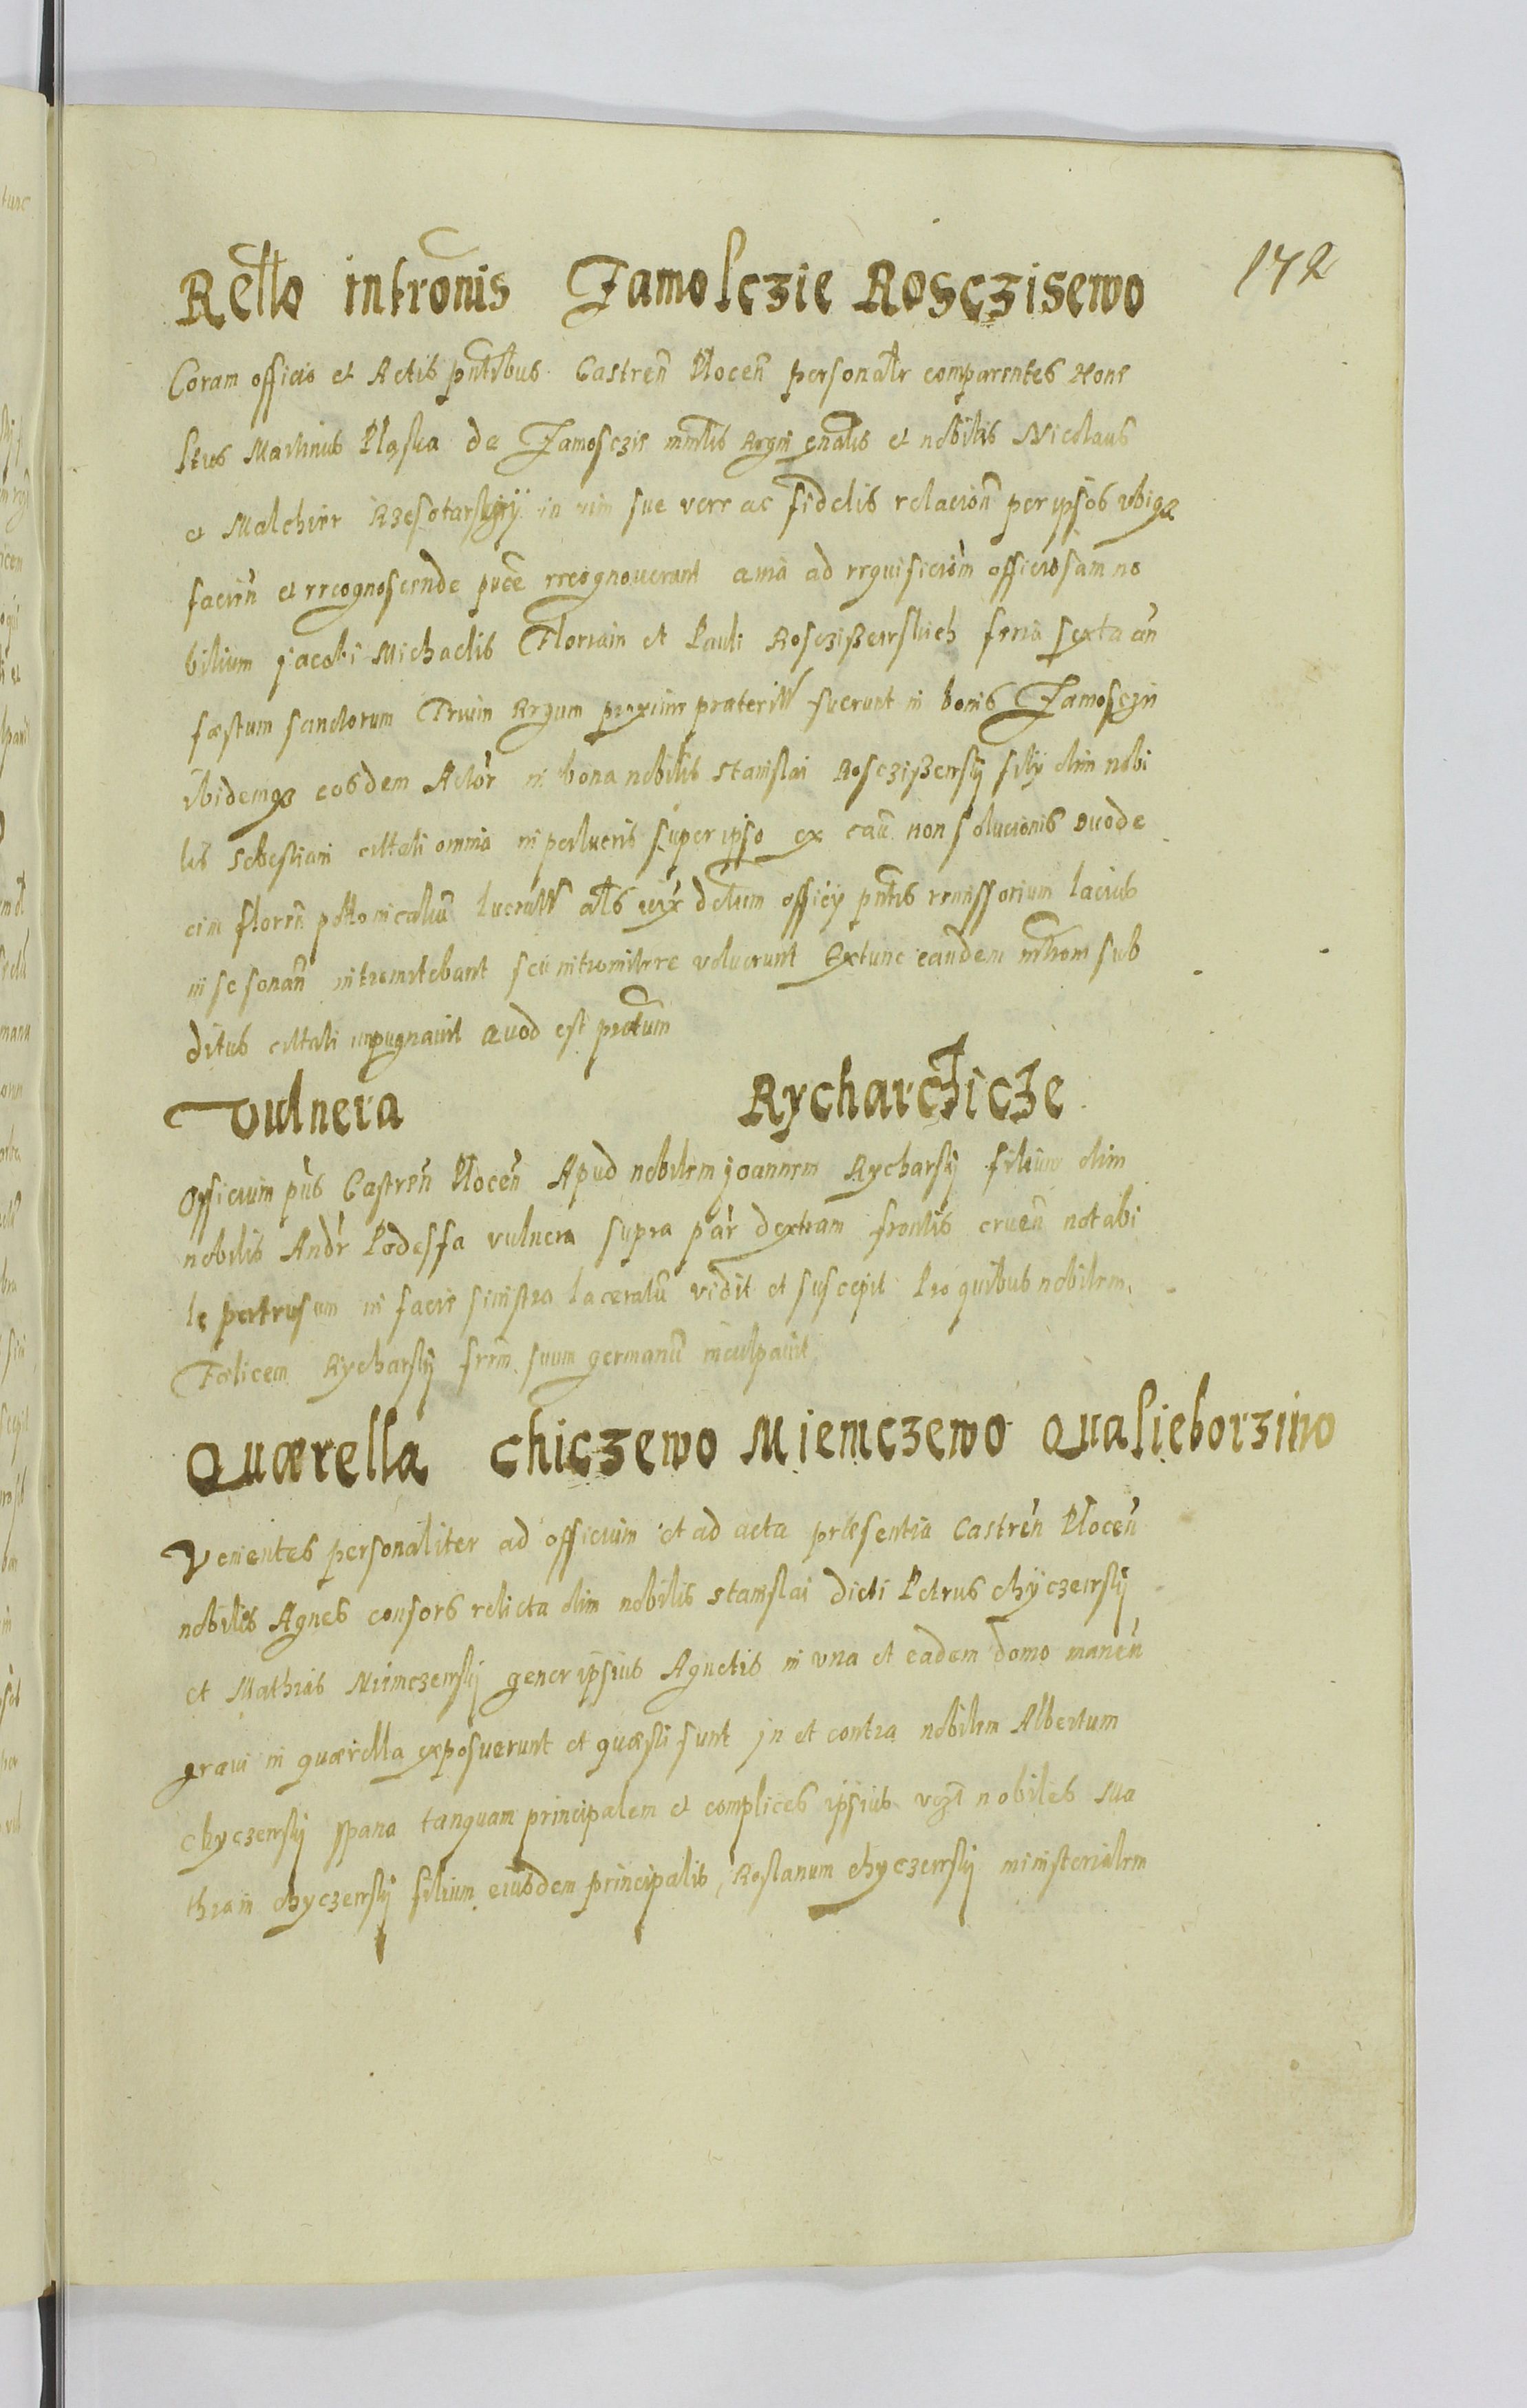 172
Rello intronis Zamosczie Rosczisewo
Coram officio et Actis pntibus Castren Plocen personalr comparentes Hone
stus Martinus Pląska de Zamosczie mnlis Regni gnalis et nobilis Nicolaus
et Malchier Rzesotarsky in vim sue vere ac fidelis relacion per ipsos vbiqz
facien et recognoscende puce recognouerunt quia ad requisicionm officiosam no
bilium jacobi Michaelis Floriain et Pauli Rosczißewskich feria sexta an
fæstum sanctorum Trium Regum proxime praterit fuerunt in bonis Zamosczie
ibidemqz eosdem Actor in bona nobilis Stanislai Rosczißewskj filij olim nobi
lis Sebestiani cittati omnia in perlucris super ipso ex cau non solucionis duode
cim floren pollonicaliu lucratt als iux detum officij pntis remissorium lacius
in se sonan intromitebant seu intromitere voluerunt Extunc eandem introm sub
ditus cittati impugnauit quod est protum
Vulnera Rycharczicze
Officium pns Castren Plocen Apud nobilem joannem Rycharskj filium olim
nobilis Andr Podessa vulnera supra par dextram frontis cruen notabi
le pertrusum in facie sinistra laceratu vidit et suscepit Pro quibus nobilem
Fœlicem Rycharskj frem suum germanu inculpauit
Quærella Chiczewo Miemczewo Quasieborzino
Venientes personaliter ad officium et ad acta præsentia Castren Plocen
nobiles Agnes consors relicta olim nobilis Stanislai dicti Petrus Chyczewskj
et Mathias Miemczewskj gener ipsius Agnetis in vna et eadem domo manen
graui in quærella exposuerunt et quæsti sunt jn et contra nobilem Albertum
Chyczewskj Span tanquam principalem et complices ipsius vczt nobiles Ma
thiam Chyczewskj filium eiusdem principalis, Roslanum Chyczewskj ministerialem